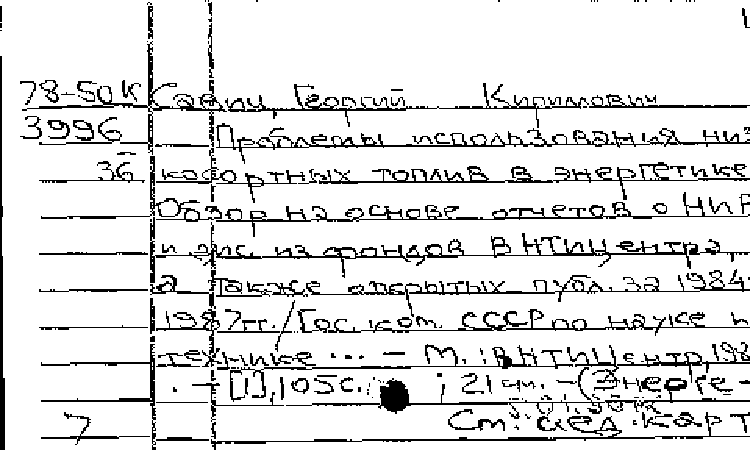 78-50К Савич, Георгий Кириллович
3996 Проблемы использования низ
36 косортных топлив в энергетике
Обзор на основе отчетов о НИР
и дис. из фондов ВНТИЦентра,
а также открытых публ. за 1984-
1987гг. / Гос. ком. СССР по науке и
технике ... – М. : ВНТИЦентр, 198
. – [1], 105с. ; 21 см. – (Энерге-
7 См. след. карт